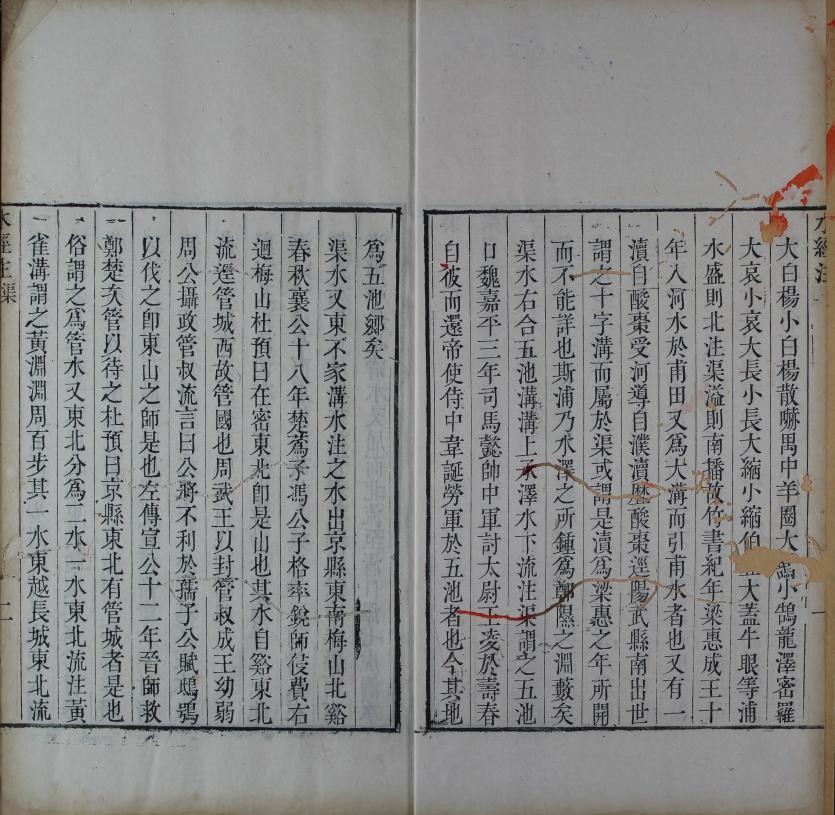 水經注
大白楊小白楊散嚇禺中羊圈大鵠小鵠龍澤密羅
大哀小哀大長小長大縮小縮伯丘大蓋牛眼等浦
水盛則北注渠溢則南播故竹書紀年梁惠成王十
年入河水於甫田又爲大溝而引甫水者也又有一
瀆自酸棗受河導自濮瀆歷酸棗逕陽武縣南出世
謂之十字溝而屬於渠或謂是瀆爲梁惠之年所開
而不能詳也斯浦乃水澤之所鍾爲鄭隰之淵藪矣
渠水右合五池溝溝上承澤水下流注渠謂之五池
口魏嘉平三年司馬懿帥中軍討太尉王凌於壽春
自彼而還帝使侍中韋誕勞軍於五池者也今其地
爲五池鄉矣
渠水又東不家溝水注之水出京縣東南梅山北谿
春秋襄公十八年楚蒍子馮公子格率銳師侵費右
迴梅山杜預曰在密東北卽是山也其水自谿東北
流逕管城西故管國也周武王以封管叔成王幼弱
周公攝政管叔流言曰公將不利於孺子公賦鴟鴞
以伐之卽東山之師是也左傳宣公十二年晉師救
鄭楚次管以待之杜預曰京縣東北有管城者是也
俗謂之爲管水又東北分爲二水一水東北流注黃
雀溝謂之黃淵淵周百步其一水東越長城東北流
水經注渠
二